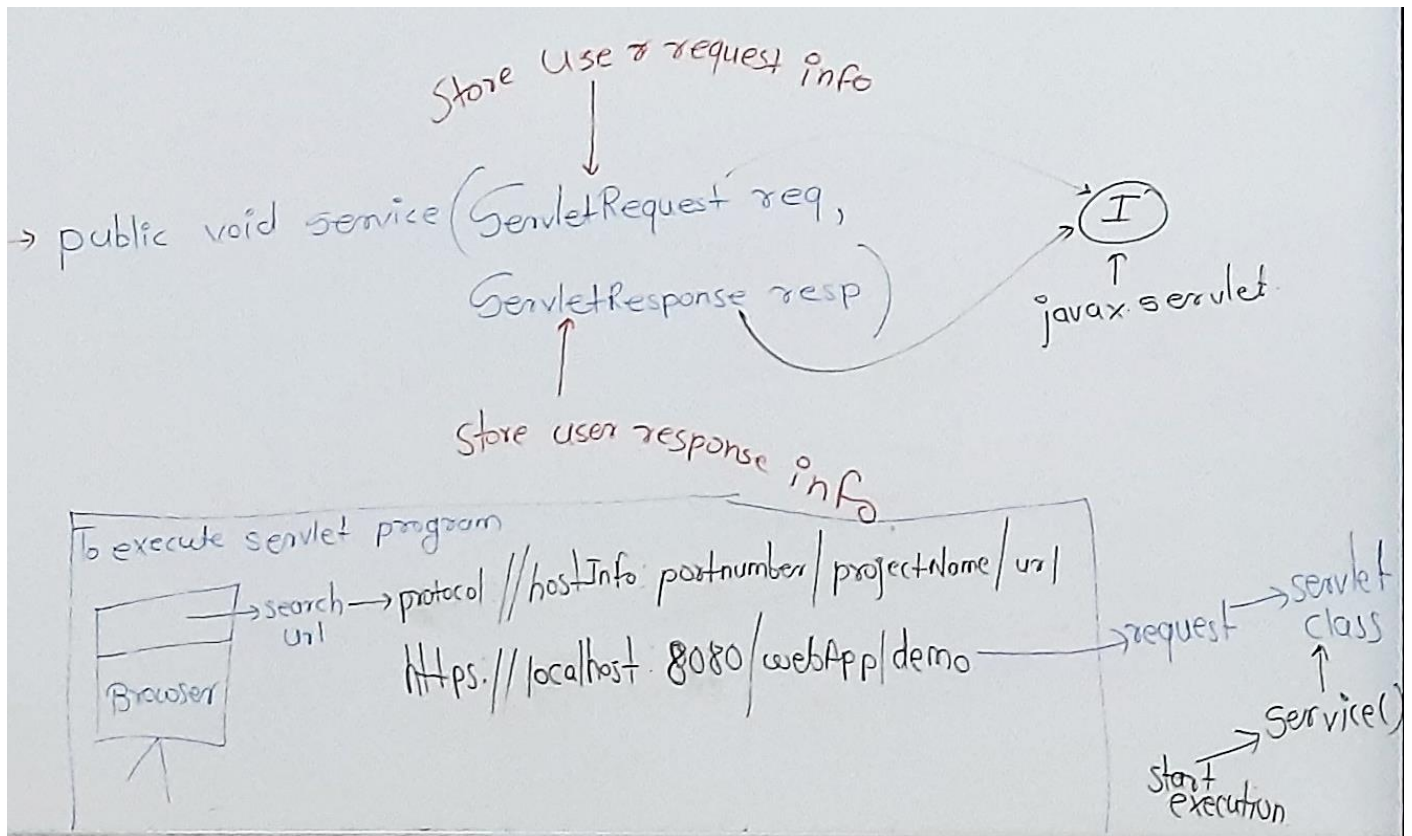 Store user request info
→ public void service (ServletRequest req,
ServletResponse resp)
I
javax.servlet.
Store user response info
To execute servlet program
Browser
search → protocol //hostInfo: portnumber/projectName/url
url
https://localhost:8080/webApp/demo
request → servlet
class
service()
start
execution